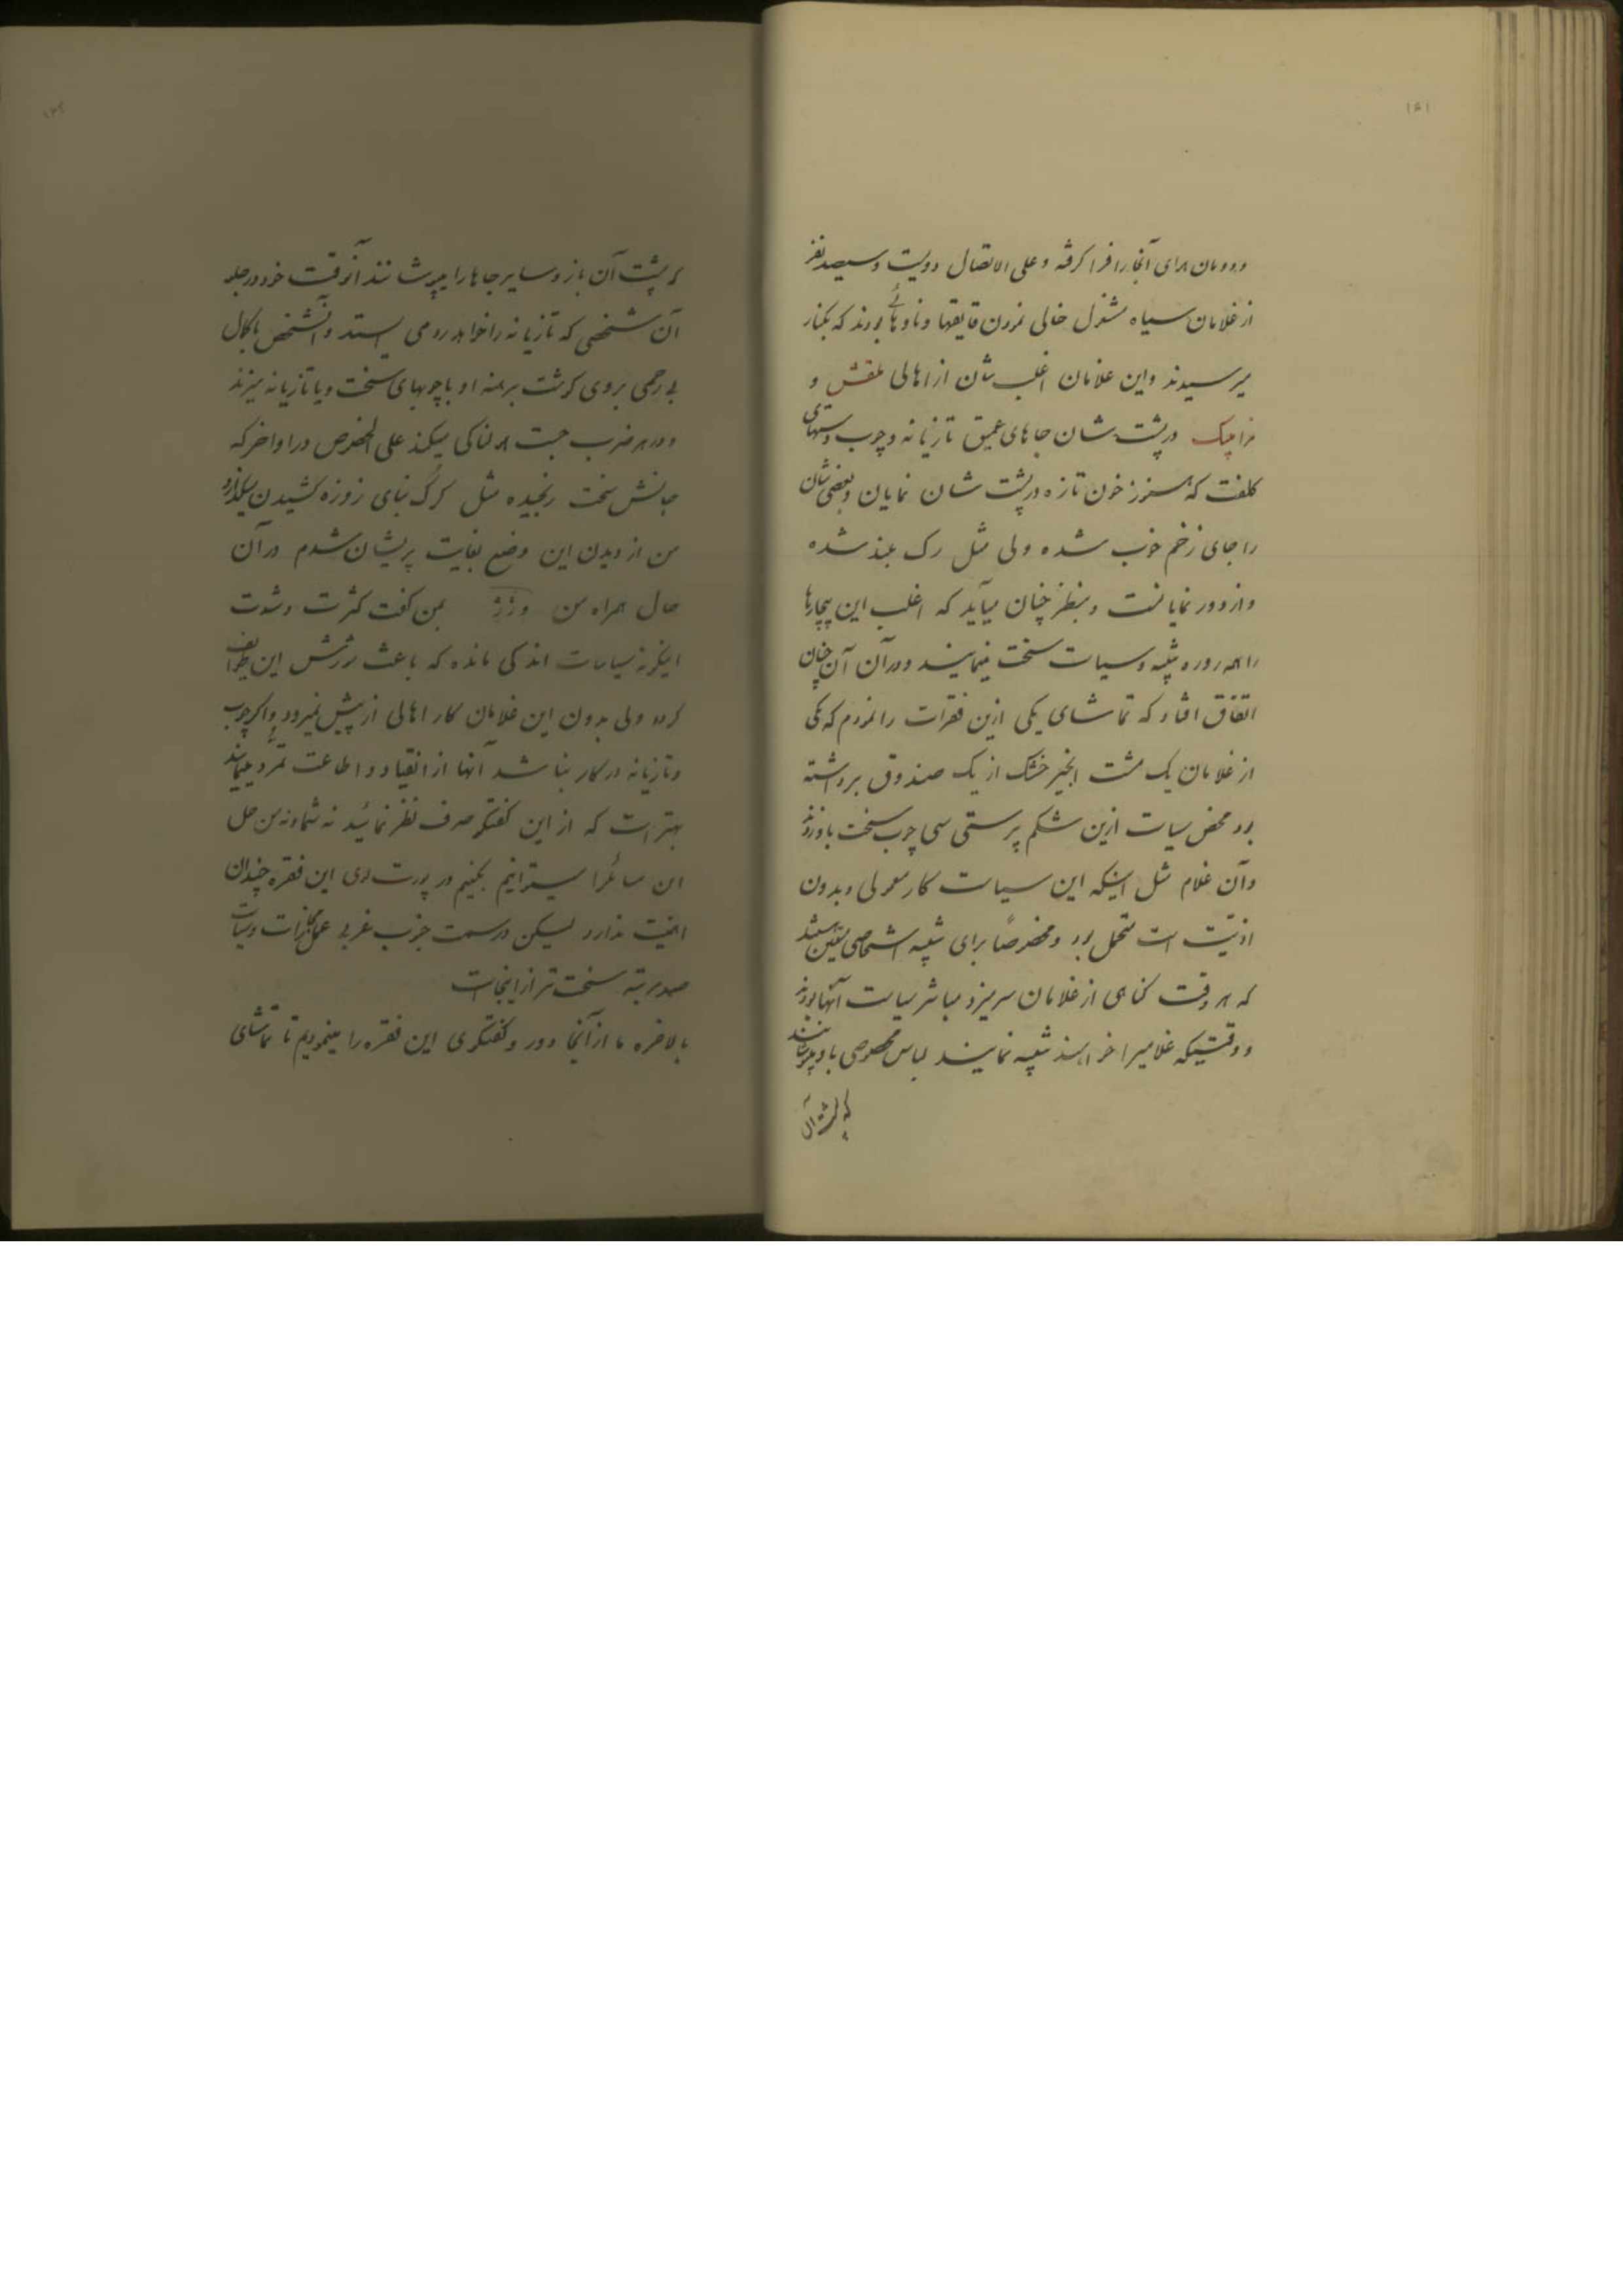 ۱۴۱
و دودمان هرای آنجا را فرا گرفته و علی الاتصال دویست و سیصد نفر
از غلامان سیاه مشغول خالی نمودن قایقها و ناوهائی بودند که بکنار
میرسیدند و این غلامان اغلب شان از اهالی بلقش و
مزامبیک در پشت شان جاهای عمیق تازیانه و چوب دستهای
کلفت که هنوز خون تازه در پشت شان نمایان و بعضی شان
را جای زخم خوب شده ولی مثل رگ بلند شده
و از دور نمایانست و بنظر چنان میآید که اغلب این بیچارها
را همه روزه تنبیه و سیاست سخت مینمایند و در آن آن چنان
اتفاق افتاد که تماشای یکی ازین فقرات را نمودم که یکی
از غلامان یک مشت انجیر خشک از یک صندوق برداشته
بود محض سیاست ازین شکم پرستی سی چوب سخت باو زدند
و آن غلام مثل اینکه این سیاست کار معمولی و بدون
اذیت است متحمل بود و مخصوصاً برای تنبیه اشخاصی معین هستند
که هر وقت گناهی از غلامان سر میزد مباشر سیاست آنها بودند
و وقتیکه غلامیرا خواهند تنبیه نمایند لباس مخصوصی باو میپوشانند
که پشت آن
۱۴۲
که پشت آن باز و سایر جاها را میپوشانند آنوقت خود در جلو
آن شخصی که تازیانه را خواهد زد می ایستد و آنشخص با کمال
بی رحمی بروی گرشت برهنه او با چوبهای سخت و یا تازیانه میزند
و در هر ضرب جست هولناکی میکند علی الخصوص در اواخر که
جانش سخت رنجیده مثل گرگ بنای زوزه کشیدن میگذارد
من از دیدن این وضع بغایت پریشان شدم در آن
حال همراه من ورژژ بمن گفت کثرت و شدت
اینگونه سیاسات اندکی مانده که باعث شورش این طوایف
گردد ولی بدون این غلامان کار اهالی از پیش نمیرود و اگر چوب
و تازیانه در کار نباشد آنها از انقیاد و اطاعت تمرد مینمایند
بهتر است که از این گفتگو صرف نظر نمائید نه شما و نه من حل
این مسائل را میتوانیم بکنیم در پورت لوی این فقره چندان
اهمیت ندارد لیکن در سمت جنوب غربی عمل مجازات و سیاست
صد مرتبه سخت تر از اینجاست
بالاخره ما از آنجا دور و گفتگوی این فقره را مینمودیم تا تماشای